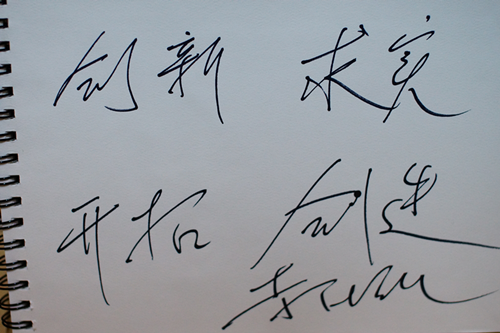 创新 求实
开拓 创造